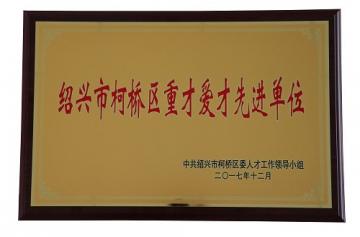 绍兴市柯桥区重才爱才先进单位
中共绍兴市柯桥区委人才工作领导小组
二〇一七年十二月